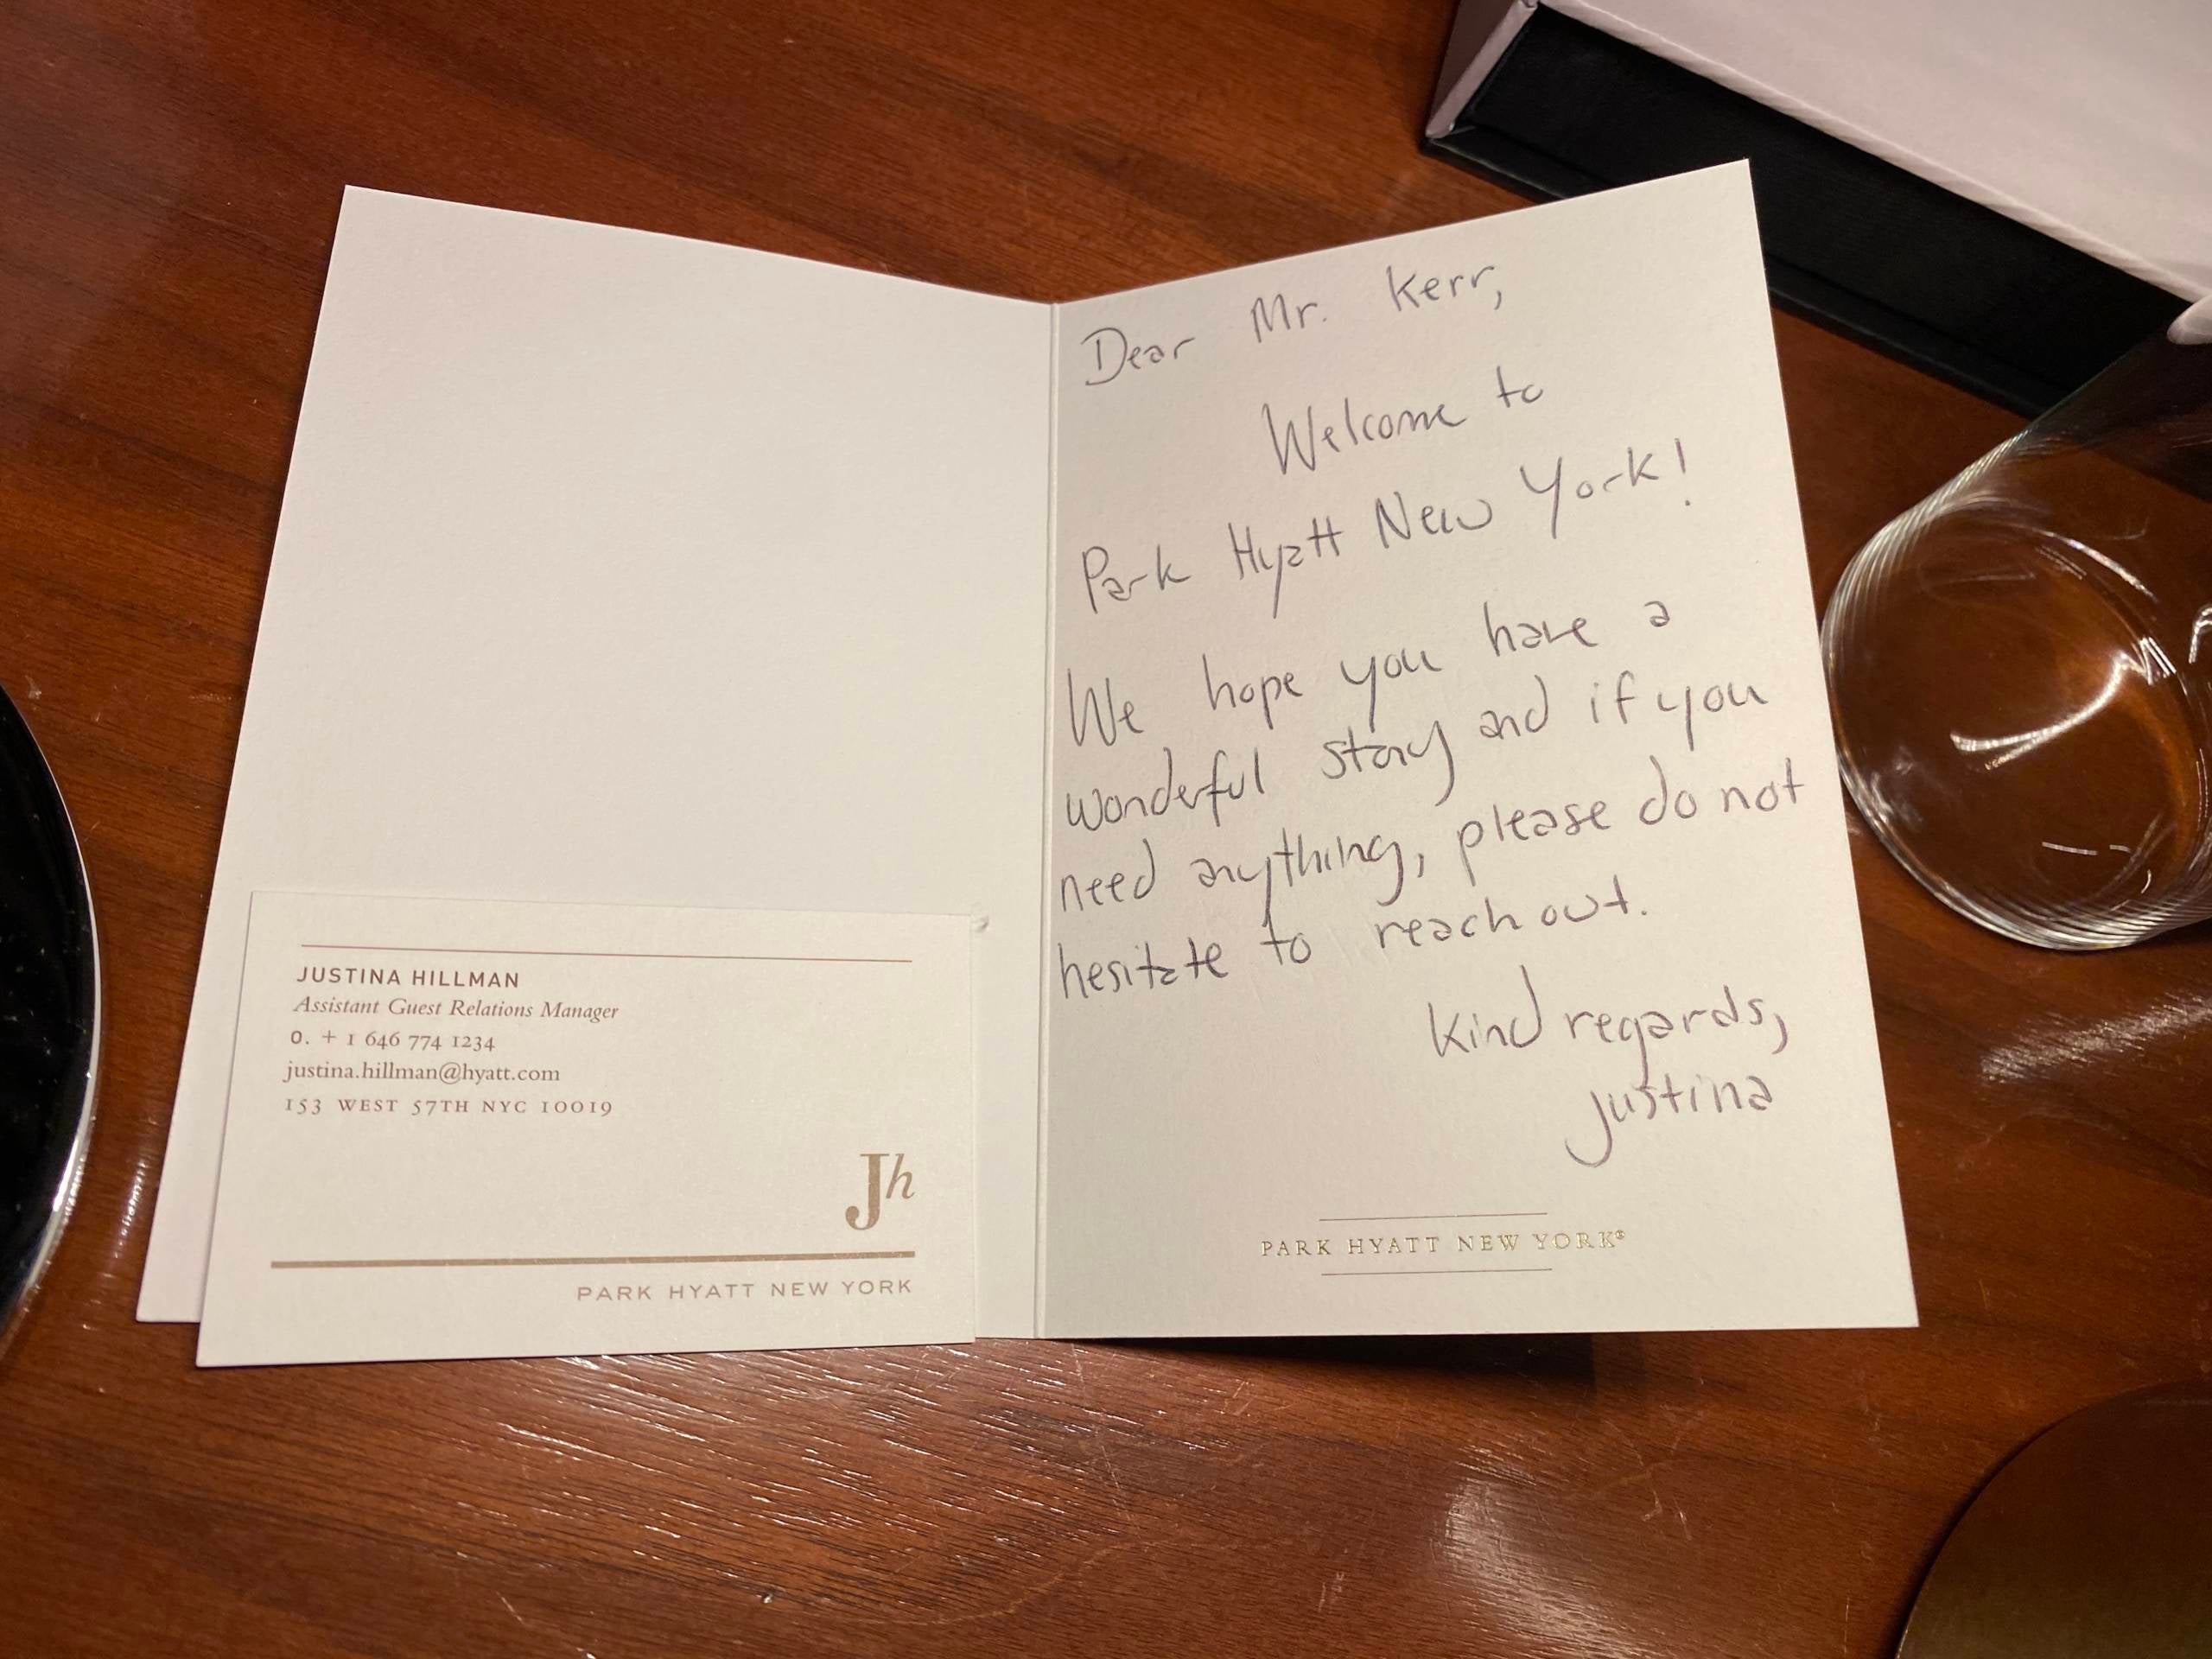 JUSTINA HILLMAN
Assistant Guest Relations Manager
o. + 1 646 774 1234
justina.hillman@hyatt.com
153 WEST 57TH NYC 10019
Jh
PARK HYATT NEW YORK
Dear Mr. Kerr,
Welcome to
Park Hyatt New York!
We hope you have a
wonderful stay and if you
need anything, please do not
hesitate to reach out.
Kind regards,
Justina
PARK HYATT NEW YORK®